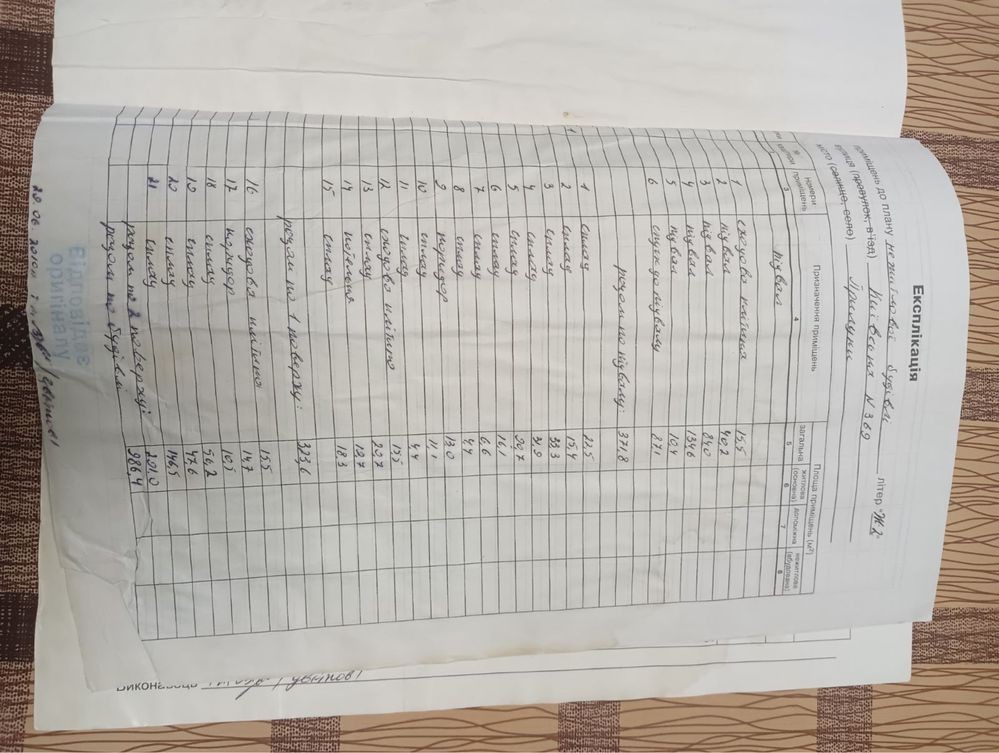 Експлікація
приміщень до плану нежитлової будівлі літер "Ж-2"
вулиця (провулок, в'їзд) Київська № 369
місто (селище, село) Прилуки
Номери приміщень
Призначення приміщень
Площа приміщень (м²)
загальна
житлова (основна)
допоміжна
нежитлова (вбудована)
3 4 5 6 7 8
підвал
1 сходова клітина 15,5
2 підвал 40,2
3 підвал 84,0
4 підвал 134,6
5 підвал 10,4
6 спуск до підвалу 87,1
разом по підвалу: 371,8
1 склад 22,5
2 склад 15,4
3 склад 33,3
4 склад 31,9
5 склад
6 склад 16,1
7 склад 6,6
8 склад
9 коридор 13,0
10 склад 11,1
11 склад
12 сходова клітина 15,5
13 склад 20,7
14 котельня 12,7
15 склад 18,3
разом по 1 поверху: 323,6
16 сходова клітина 15,5
17 коридор 14,7
18 склад 10,5
19 склад 56,2
20 склад 47,6
21 склад 146,5
разом по 2 поверху: 291,0
разом по будівлі 986,4
Відповідає
оригіналу
Виконавець